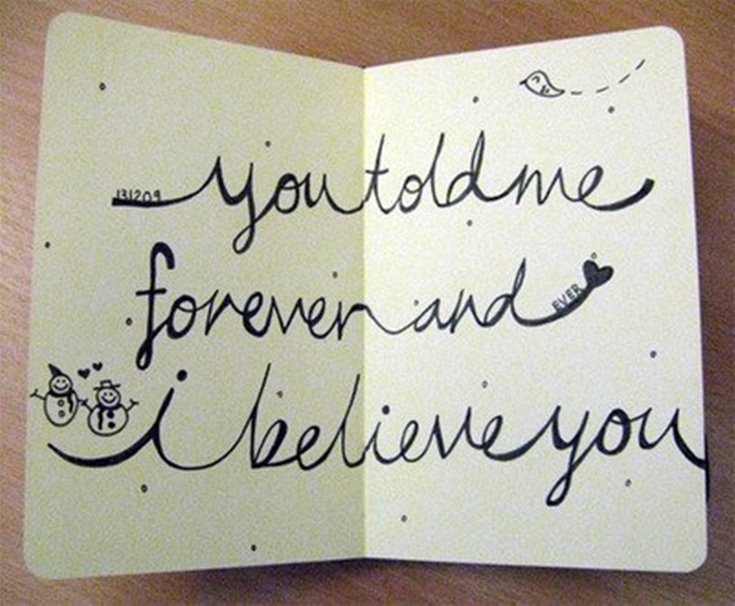 131209
you told me
forever and
EVER
i believe you